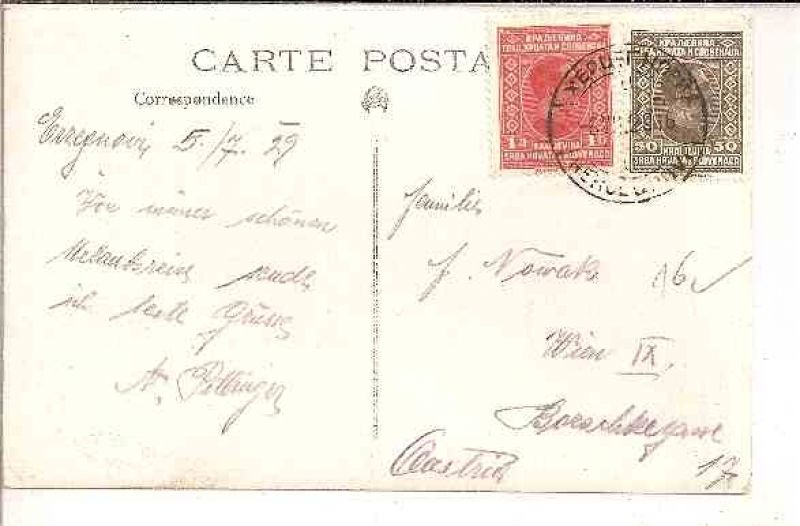 CARTE POSTA
Correspondence
Erzegnovi, 5./7. 29
Von meiner schönen
sende
ich beste Grüsse
A. Pollinger
Familie
J. Nowak
16
Wien IX.
Borschkegasse
17
Austria
КРАЉЕВИНА
СРБА, ХРВАТА И СЛОВЕНАЦА
1D 1D
KRALJEVINA
SRBA HRVATA I SLOVENACA
КРАЉЕВИНА
СРБА, ХРВАТА И СЛОВЕНАЦА
50 50
KRALJEVINA
SRBA HRVATA I SLOVENACA